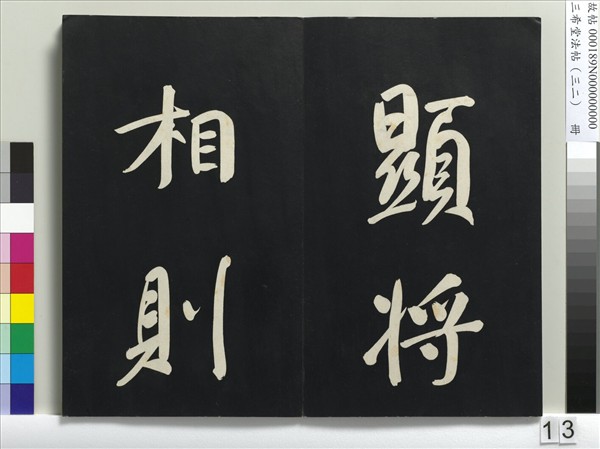 顯將
相則
故帖 000189N000000000
三希堂法帖（三二） 冊
13